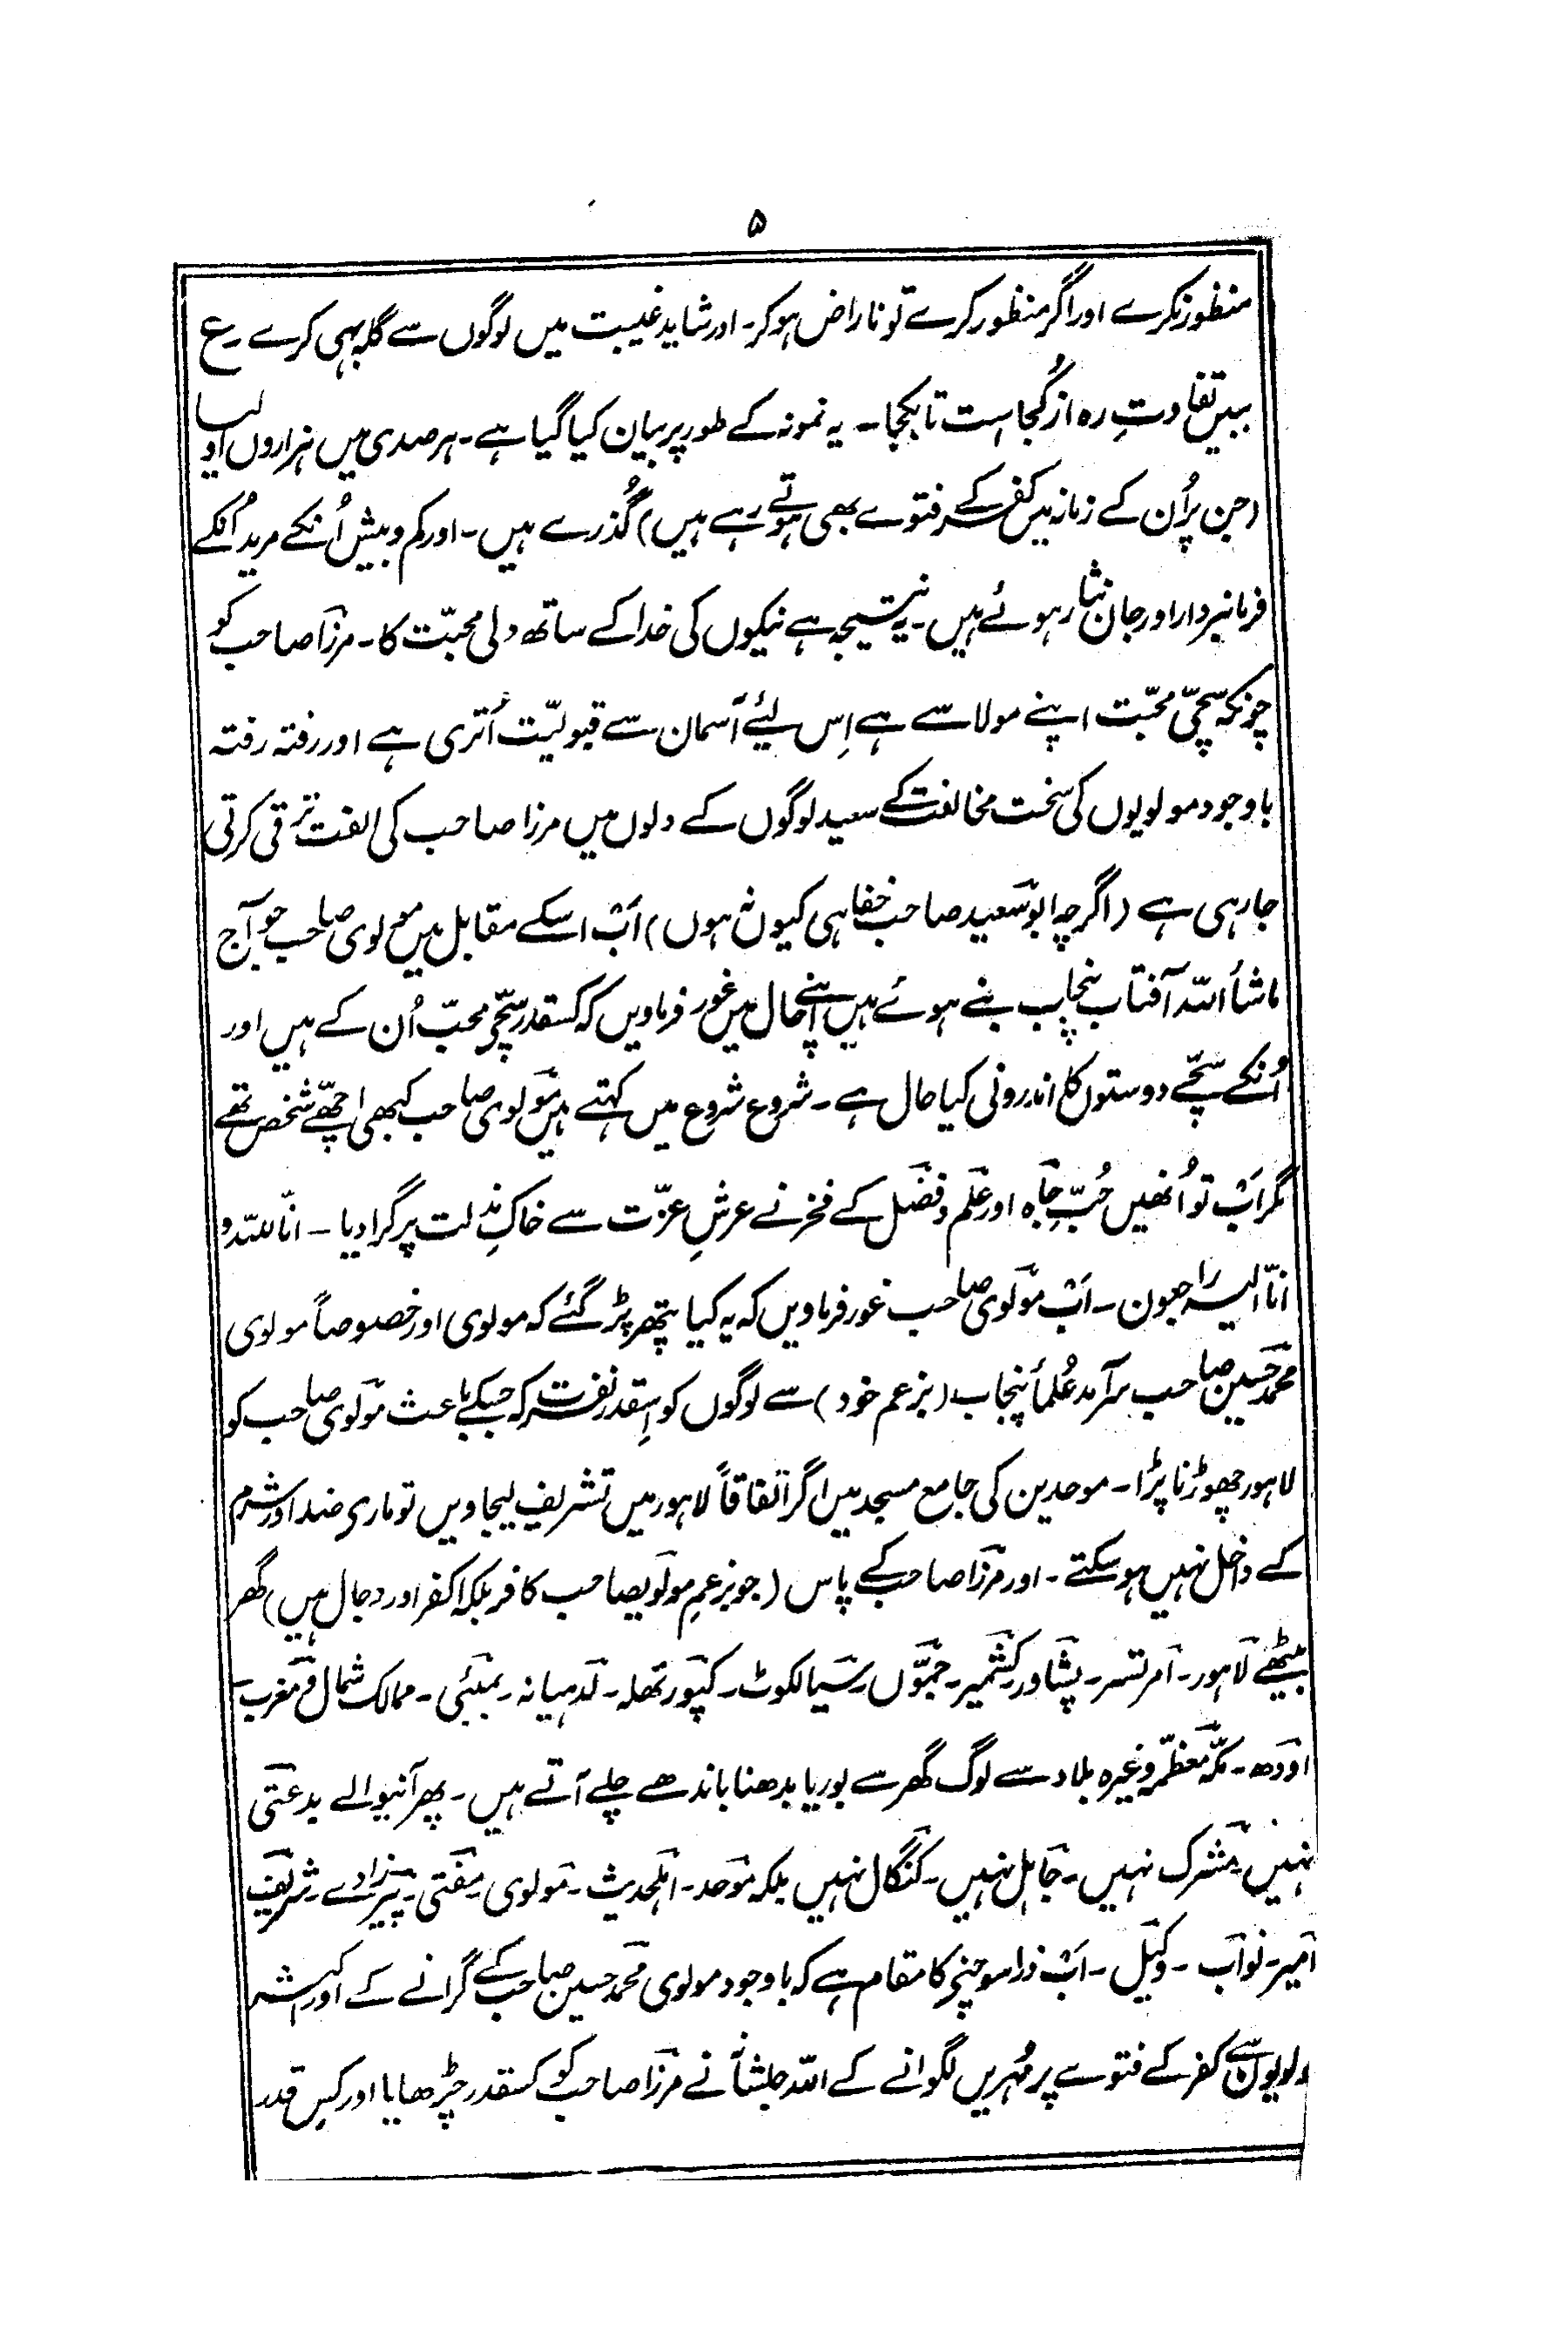 ۵
منظور نکرے اور اگر منظور کرے تو ناراض ہو کر۔ اور شاید غیبت میں لوگوں سے گلہ بھی کرے ع
ببیں تفاوتِ رہ از کُجاست تا بکجا۔ یہ نمونہ کے طور پر بیان کیا گیا ہے۔ ہر صدی میں ہزاروں اولیا
(جن پر اُن کے زمانہ میں کفر کے فتوے بھی ہوتے رہے ہیں) گُذرے ہیں۔ اور کم و بیش اُنکے مرید اُنکے
فرمانبردار اور جان نثار ہوئے ہیں۔ یہ نتیجہ ہے نیکوں کی خدا کے ساتھ دلی محبّت کا۔ مرزا صاحب کو
چونکہ سچّی محبّت اپنے مولا سے ہے اِس لیئے آسمان سے قبولیّت اُتری ہے اور رفتہ رفتہ
باوجود مولویوں کی سخت مخالفت کے سعید لوگوں کے دلوں میں مرزا صاحب کی الفت ترقی کرتی
جا رہی ہے (اگرچہ ابو سعید صاحب خفا ہی کیوں نہ ہوں) اب اسکے مقابل میں مولوی صاحب جو آج
ماشأ اللہ آفتاب پنجاب بنے ہوئے ہیں اپنے حال میں غور فرماویں کہ کسقدر سچّے محبّ اُن کے ہیں اور
اُنکے سچّے دوستوں کا اندرونی کیا حال ہے۔ شروع شروع میں کہتے ہیں مولوی صاحب کبھی اچھّے شخص تھے
مگر اب تو اُنھیں حُبّ جاہ اور علم و فضل کے فخر نے عرشِ عزّت سے خاکِ مذلت پر گرا دیا۔ انّا للہ و
انّا الیہ راجعون۔ اب مولوی صاحب غور فرماویں کہ یہ کیا پتھر پڑ گئے کہ مولوی اور خصوصاً مولوی
محمد حسین صاحب سرآمد عُلمأ پنجاب (بزعم خود) سے لوگوں کو اِسقدر نفرت کہ جسکے باعث مولوی صاحب کو
لاہور چھوڑنا پڑا۔ موحدین کی جامع مسجد میں اگر اتفاقاً لاہور میں تشریف لیجاویں تو ماری ضد اور شرم
کے داخل نہیں ہو سکتے۔ اور مرزا صاحب کے پاس (جو بزعمِ مولویصاحب کافر بلکہ اکفر اور دجال ہیں) گھر
بیٹھے لاہور۔ امرتسر۔ پشاور۔ کشمیر۔ جمّوں۔ سیالکوٹ۔ کپورتھلہ۔ لدہیانہ۔ بمبئی۔ ممالک شمال و مغرب۔
اودھ۔ مکّہ معظمّہ وغیرہ بلاد سے لوگ گھر سے بوریا بدھنا باندھے چلے آتے ہیں۔ پھر آنیوالے بدعتی
نہیں۔ مشرک نہیں۔ جاہل نہیں۔ کنگال نہیں بلکہ موحد۔ اہلحدیث۔ مولوی۔ مفتی۔ پیرزادے۔ شریف
امیر۔ نواب۔ وکیل۔ اب ذرا سوچنے کا مقام ہے کہ باوجود مولوی محمد حسین صاحب کے گرانے کے اور اکثر
مولویوں سے کفر کے فتوے پر مُہریں لگوانے کے اللہ جلشانہٗ نے مرزا صاحب کو کسقدر چڑھایا اور کس قدر